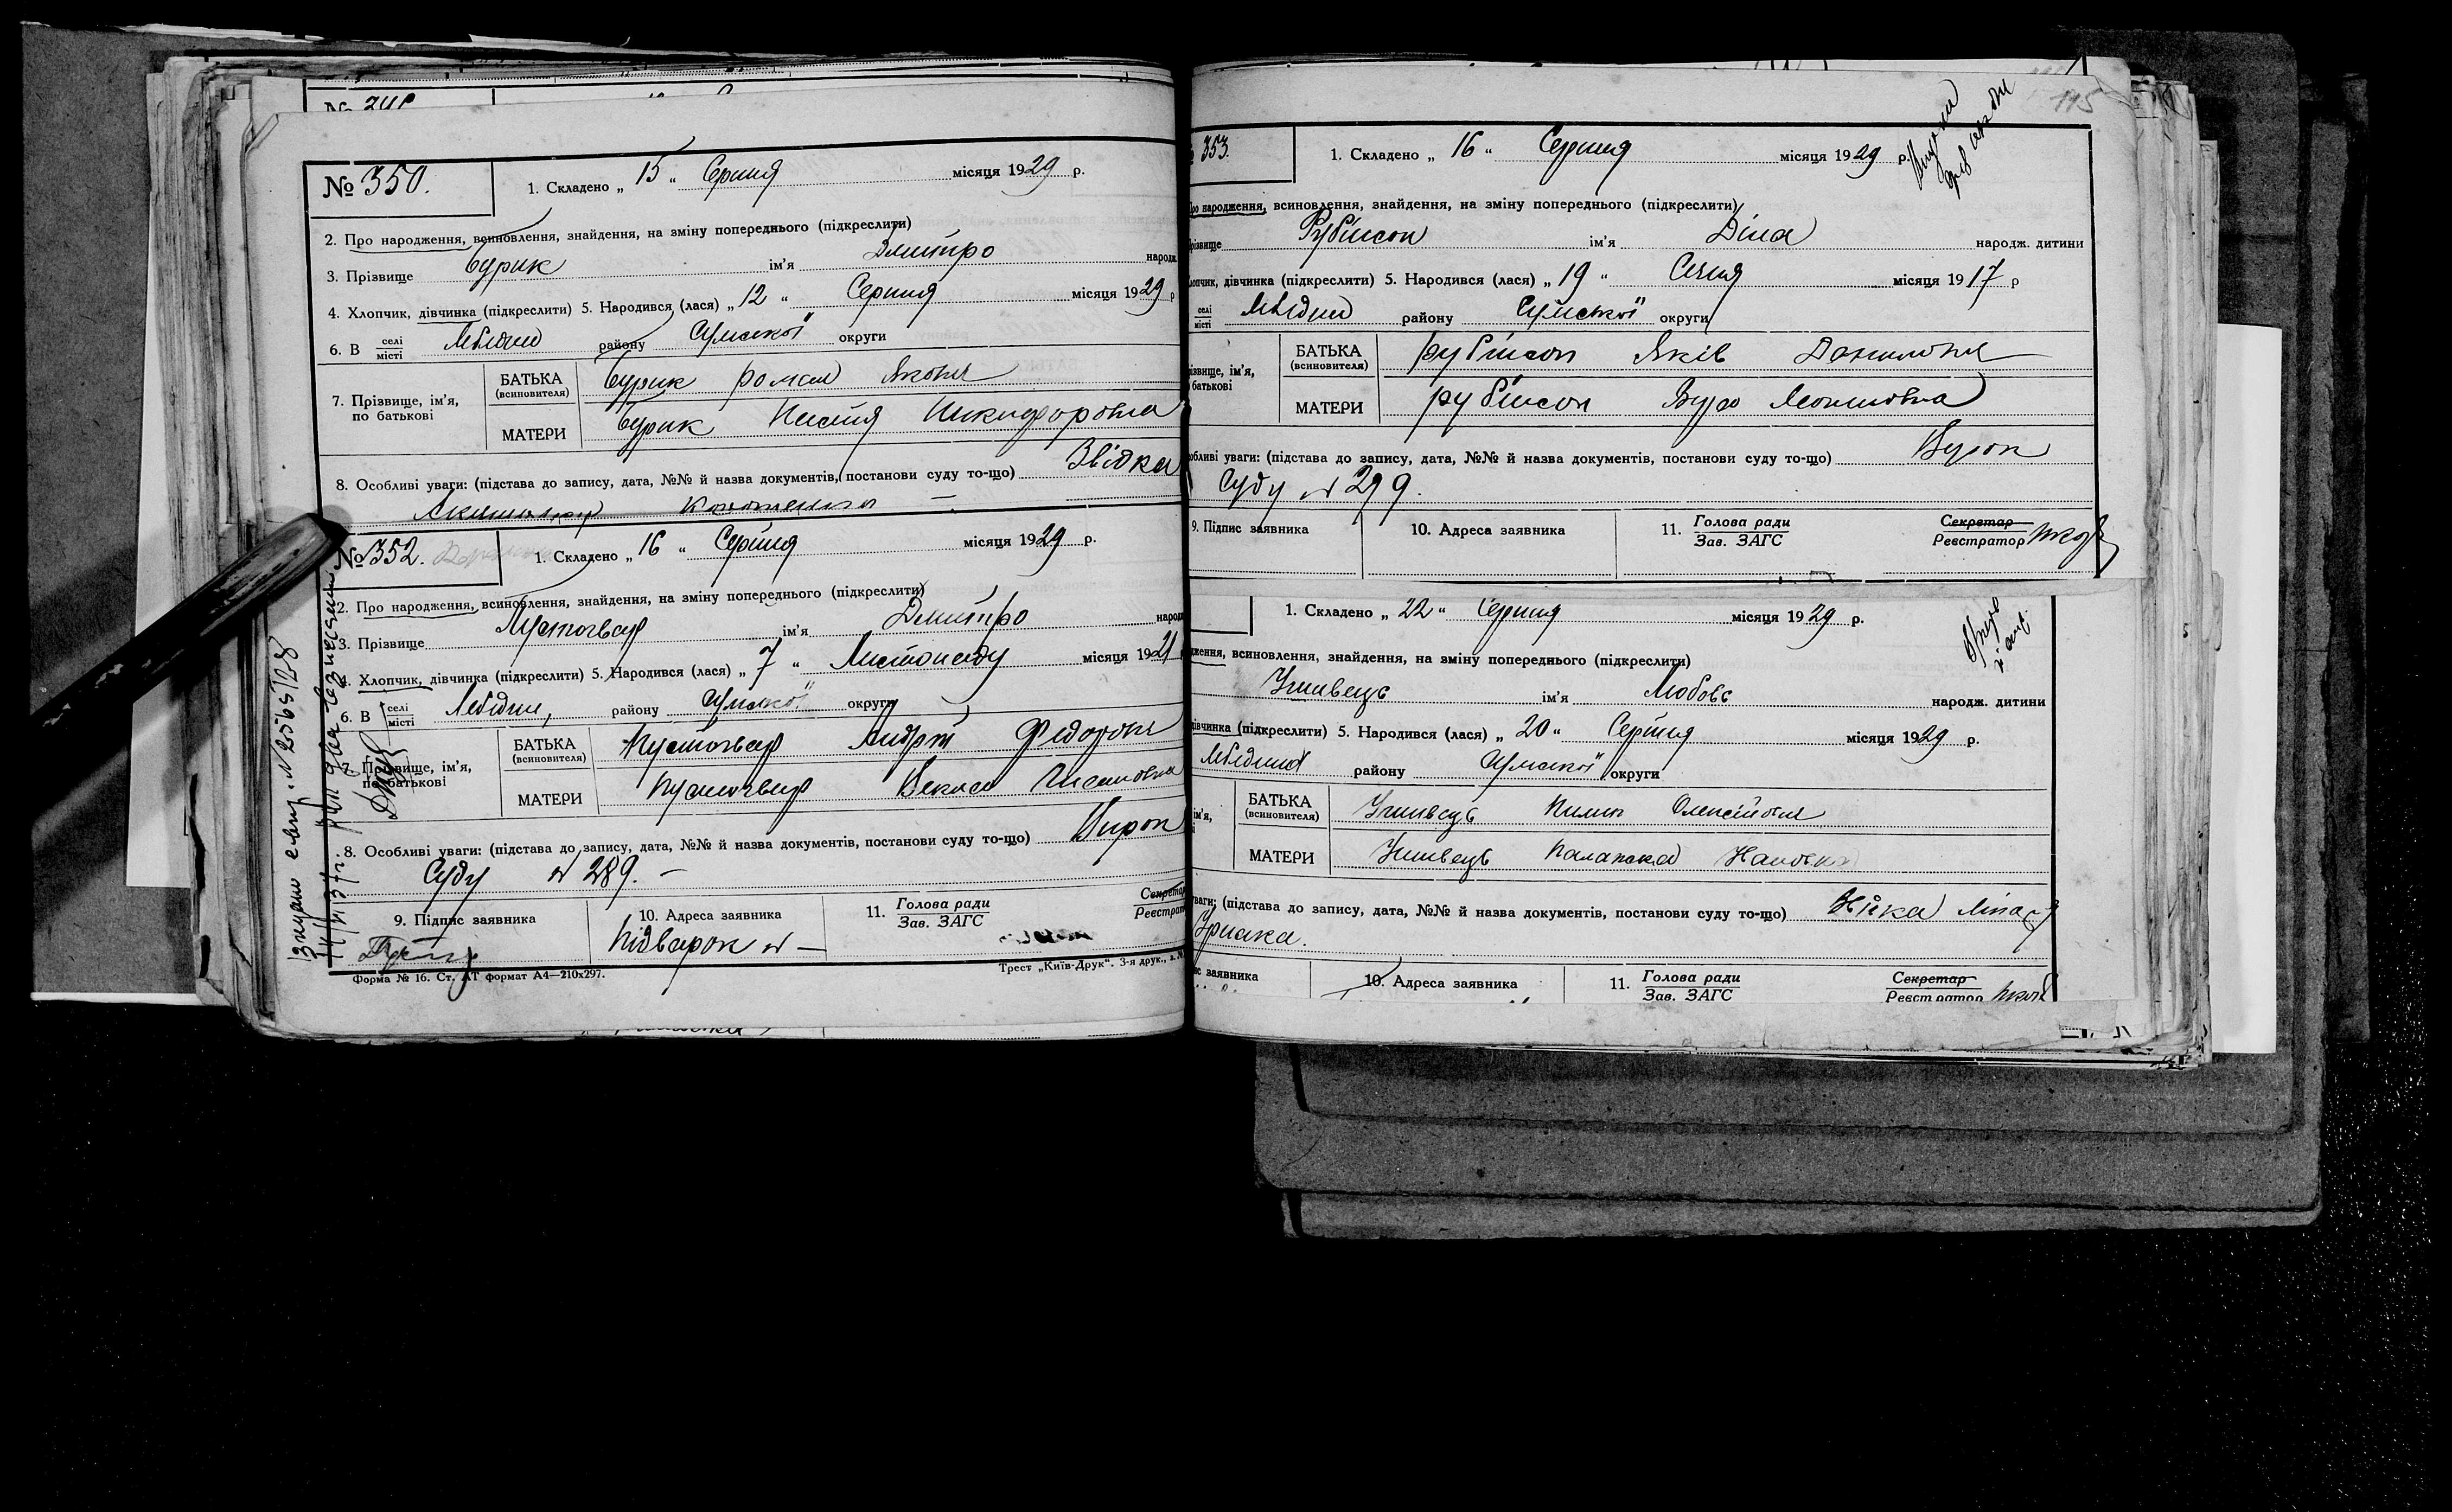 № 350.
1. Складено „ 15 “ Серпня місяця 1929 р.
2. Про народження, всиновлення, знайдення, на зміну попереднього (підкреслити)
3. Прізвище Бурик ім'я Дмитро народж.
4. Хлопчик, дівчинка (підкреслити) 5. Народився (лася) „ 12 “ Серпня місяця 1929 р
6. В селі місті Лебедин району Сумської округи
7. Прізвище, ім'я, по батькові
БАТЬКА (всиновителя) Бурик Роман Якович
МАТЕРИ Бурик Настя Никифоровна
8. Особливі уваги: (підстава до запису, дата, №№ й назва документів, постанови суду то-що) Звідка
№ 352.
1. Складено „ 16 “ Серпня місяця 1929 р.
2. Про народження, всиновлення, знайдення, на зміну попереднього (підкреслити)
3. Прізвище Пустовар ім'я Дмитро народ
4. Хлопчик, дівчинка (підкреслити) 5. Народився (лася) „ 7 “ Листопаду місяця 1921
6. В селі місті Лебедин, району Сумської округи
7. Прізвище, ім'я, по батькові
БАТЬКА (всиновителя) Пустовар Андрій Федорович
МАТЕРИ Пустовар Векла
8. Особливі уваги: (підстава до запису, дата, №№ й назва документів, постанови суду то-що) Вирок
Суду № 289. —
9. Підпис заявника
10. Адреса заявника
Підварок № —
11. Голова ради
Зав. ЗАГС
Секретар
Реєстрат
Форма № 16. Ст. АТ формат А4—210х297.
Трест „Київ-Друк“. 3-я друк., з. №
115
353.
1. Складено „ 16 “ Серпня місяця 1929 р.
Про народження, всиновлення, знайдення, на зміну попереднього (підкреслити)
прізвище Рубінсон ім'я Діна народж. дитини
лопчик, дівчинка (підкреслити) 5. Народився (лася) „ 19 “ Січня місяця 1917 р
селі місті Лебедин району Сумської округи
різвище, ім'я, батькові
БАТЬКА (всиновителя) Рубінсон Яків Данилович
МАТЕРИ Рубінсон
обливі уваги: (підстава до запису, дата, №№ й назва документів, постанови суду то-що) Вирок
Суду № 299.
9. Підпис заявника
10. Адреса заявника
11. Голова ради
Зав. ЗАГС
Секретар
Реєстратор
1. Складено „ 22 “ Серпня місяця 1929 р.
дження, всиновлення, знайдення, на зміну попереднього (підкреслити)
Ушивець ім'я Любовь народж. дитини
дівчинка (підкреслити) 5. Народився (лася) „ 20 “ Серпня місяця 1929 р.
Лебедині району Сумської округи
ім'я,
БАТЬКА (всиновителя) Ушивець Пилип Олексійович
МАТЕРИ Ушивець Палажка
уваги: (підстава до запису, дата, №№ й назва документів, постанови суду то-що)
ис заявника
10. Адреса заявника
11. Голова ради
Зав. ЗАГС
Секретар
Реєстратор